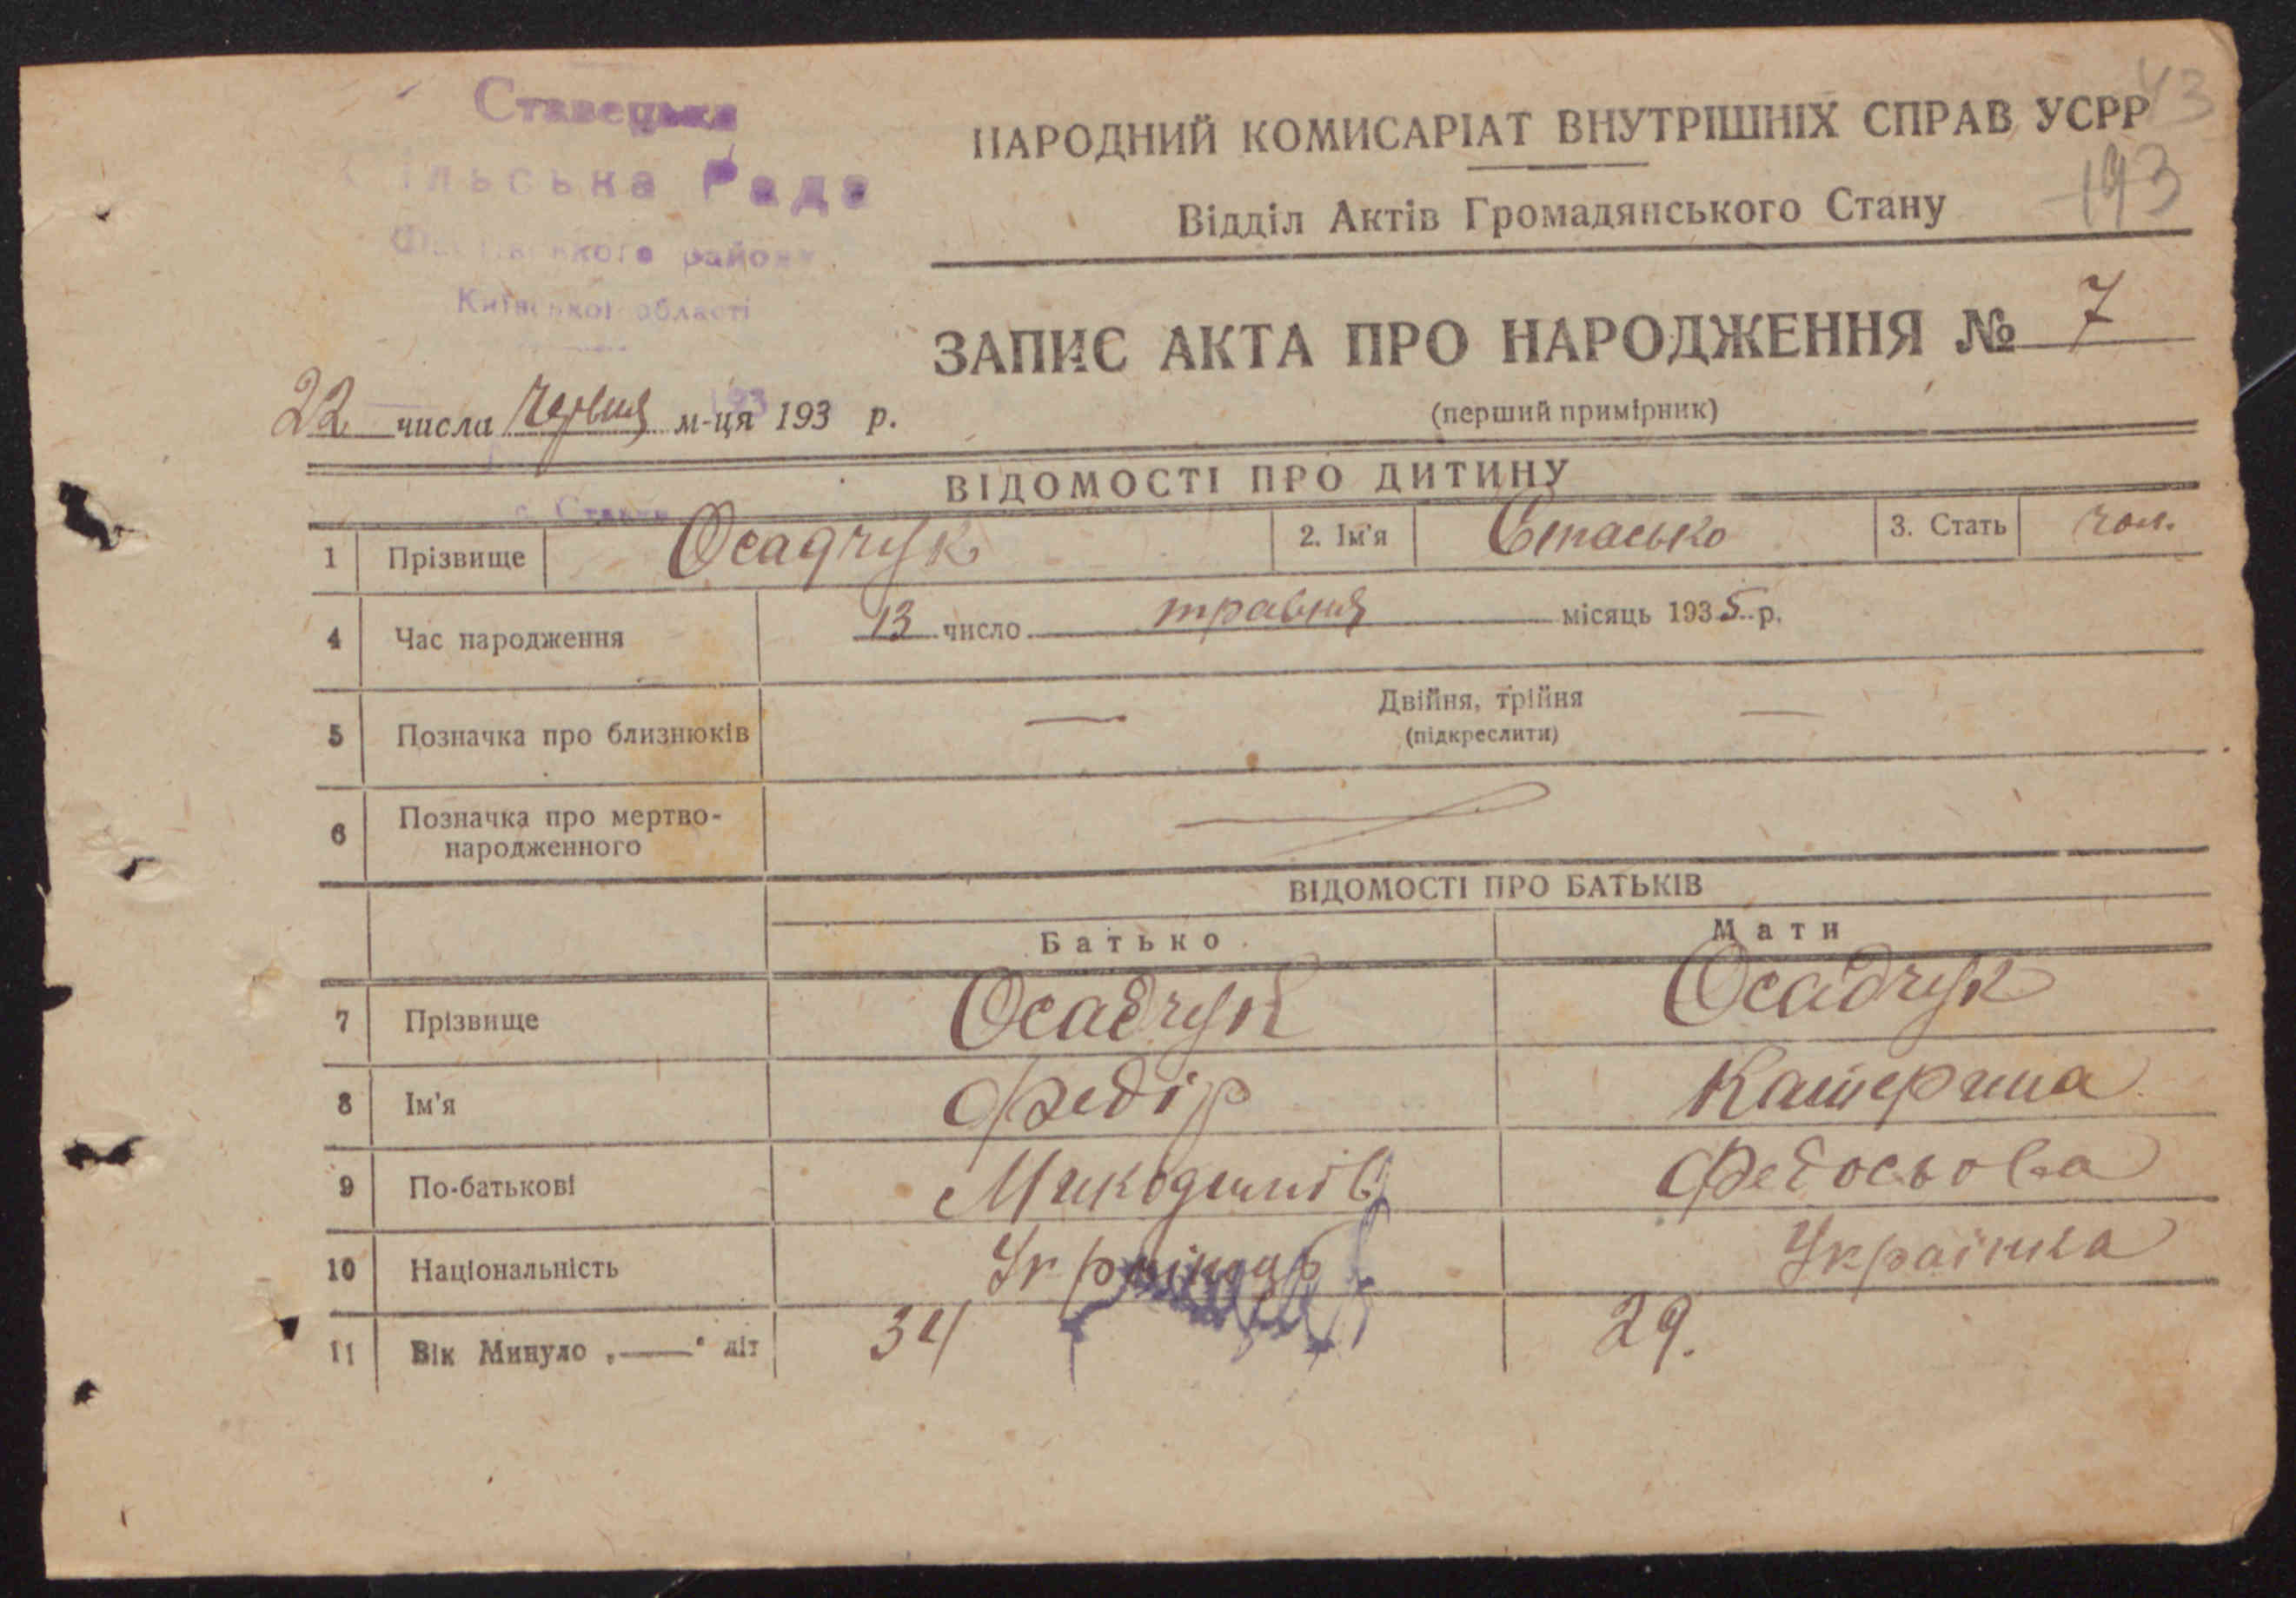 Ставецька
Сільська Рада
району
Київської області
НАРОДНИЙ КОМИСАРІАТ ВНУТРІШНІХ СПРАВ УСРР
43
193
Відділ Актів Громадянського Стану
ЗАПИС АКТА ПРО НАРОДЖЕННЯ № 7
(перший примірник)
22 числа Червня м-ця 193 р.
с. Ставки
ВІДОМОСТІ ПРО ДИТИНУ
1 Прізвище Осадчук 2. Ім'я Стасько 3. Стать чол.
4 Час народження 13 число травня місяць 1935 р.
5 Позначка про близнюків — Двійня, трійня —
(підкреслити)
6 Позначка про мертво-
народженного —
ВІДОМОСТІ ПРО БАТЬКІВ
Батько Мати
7 Прізвище Осадчук Осадчук
8 Ім'я Федір Катерина
9 По-батькові Микодимів Федосьова
10 Національність Українець Українка
11 Вік Минуло „—" літ 34 29.